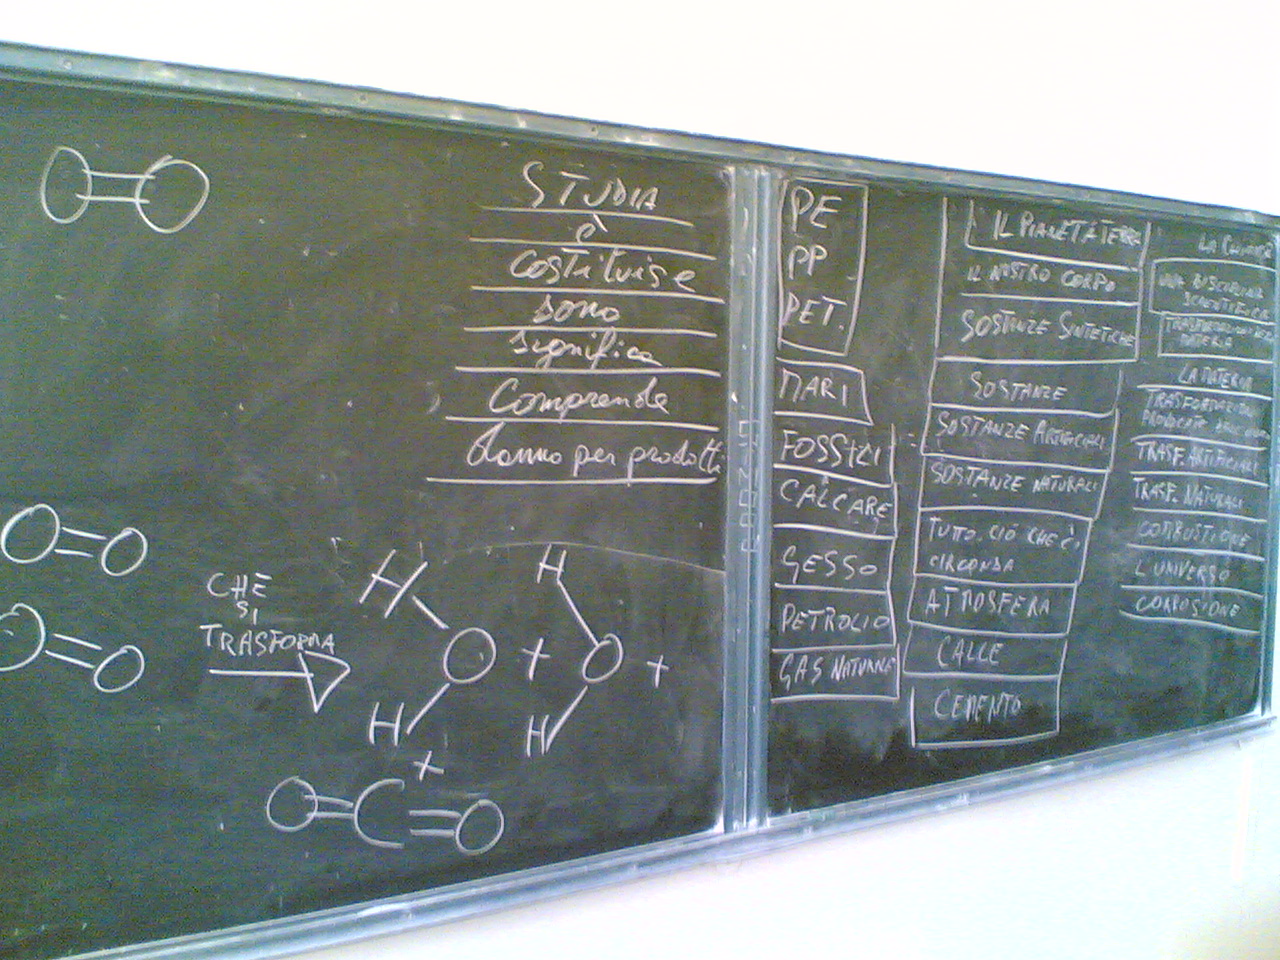 O=O
STUDIA
è
costituisce
sono
significa
Comprende
danno per prodotti
O=O
O=O
CHE
SI
TRASFORMA
H
H
O
+
H
H
O
+
+
O=C=O
PE
PP
PET.
MARI
FOSSILI
CALCARE
GESSO
PETROLIO
GAS NATURALE
IL PIANETA TERRA
IL NOSTRO CORPO
SOSTANZE SINTETICHE
SOSTANZE
SOSTANZE ARTIFICIALI
SOSTANZE NATURALI
TUTTO CIÒ CHE CI
CIRCONDA
ATMOSFERA
CALCE
CEMENTO
LA CHIMICA
UNA DISCIPLINA
SCIENTIFICA
TRASFORMAZIONI
MATERIA
LA MATERIA
TRASFORMAZIONI
TRASF. ARTIFICIALI
TRASF. NATURALI
COMBUSTIONE
L'UNIVERSO
CORROSIONE